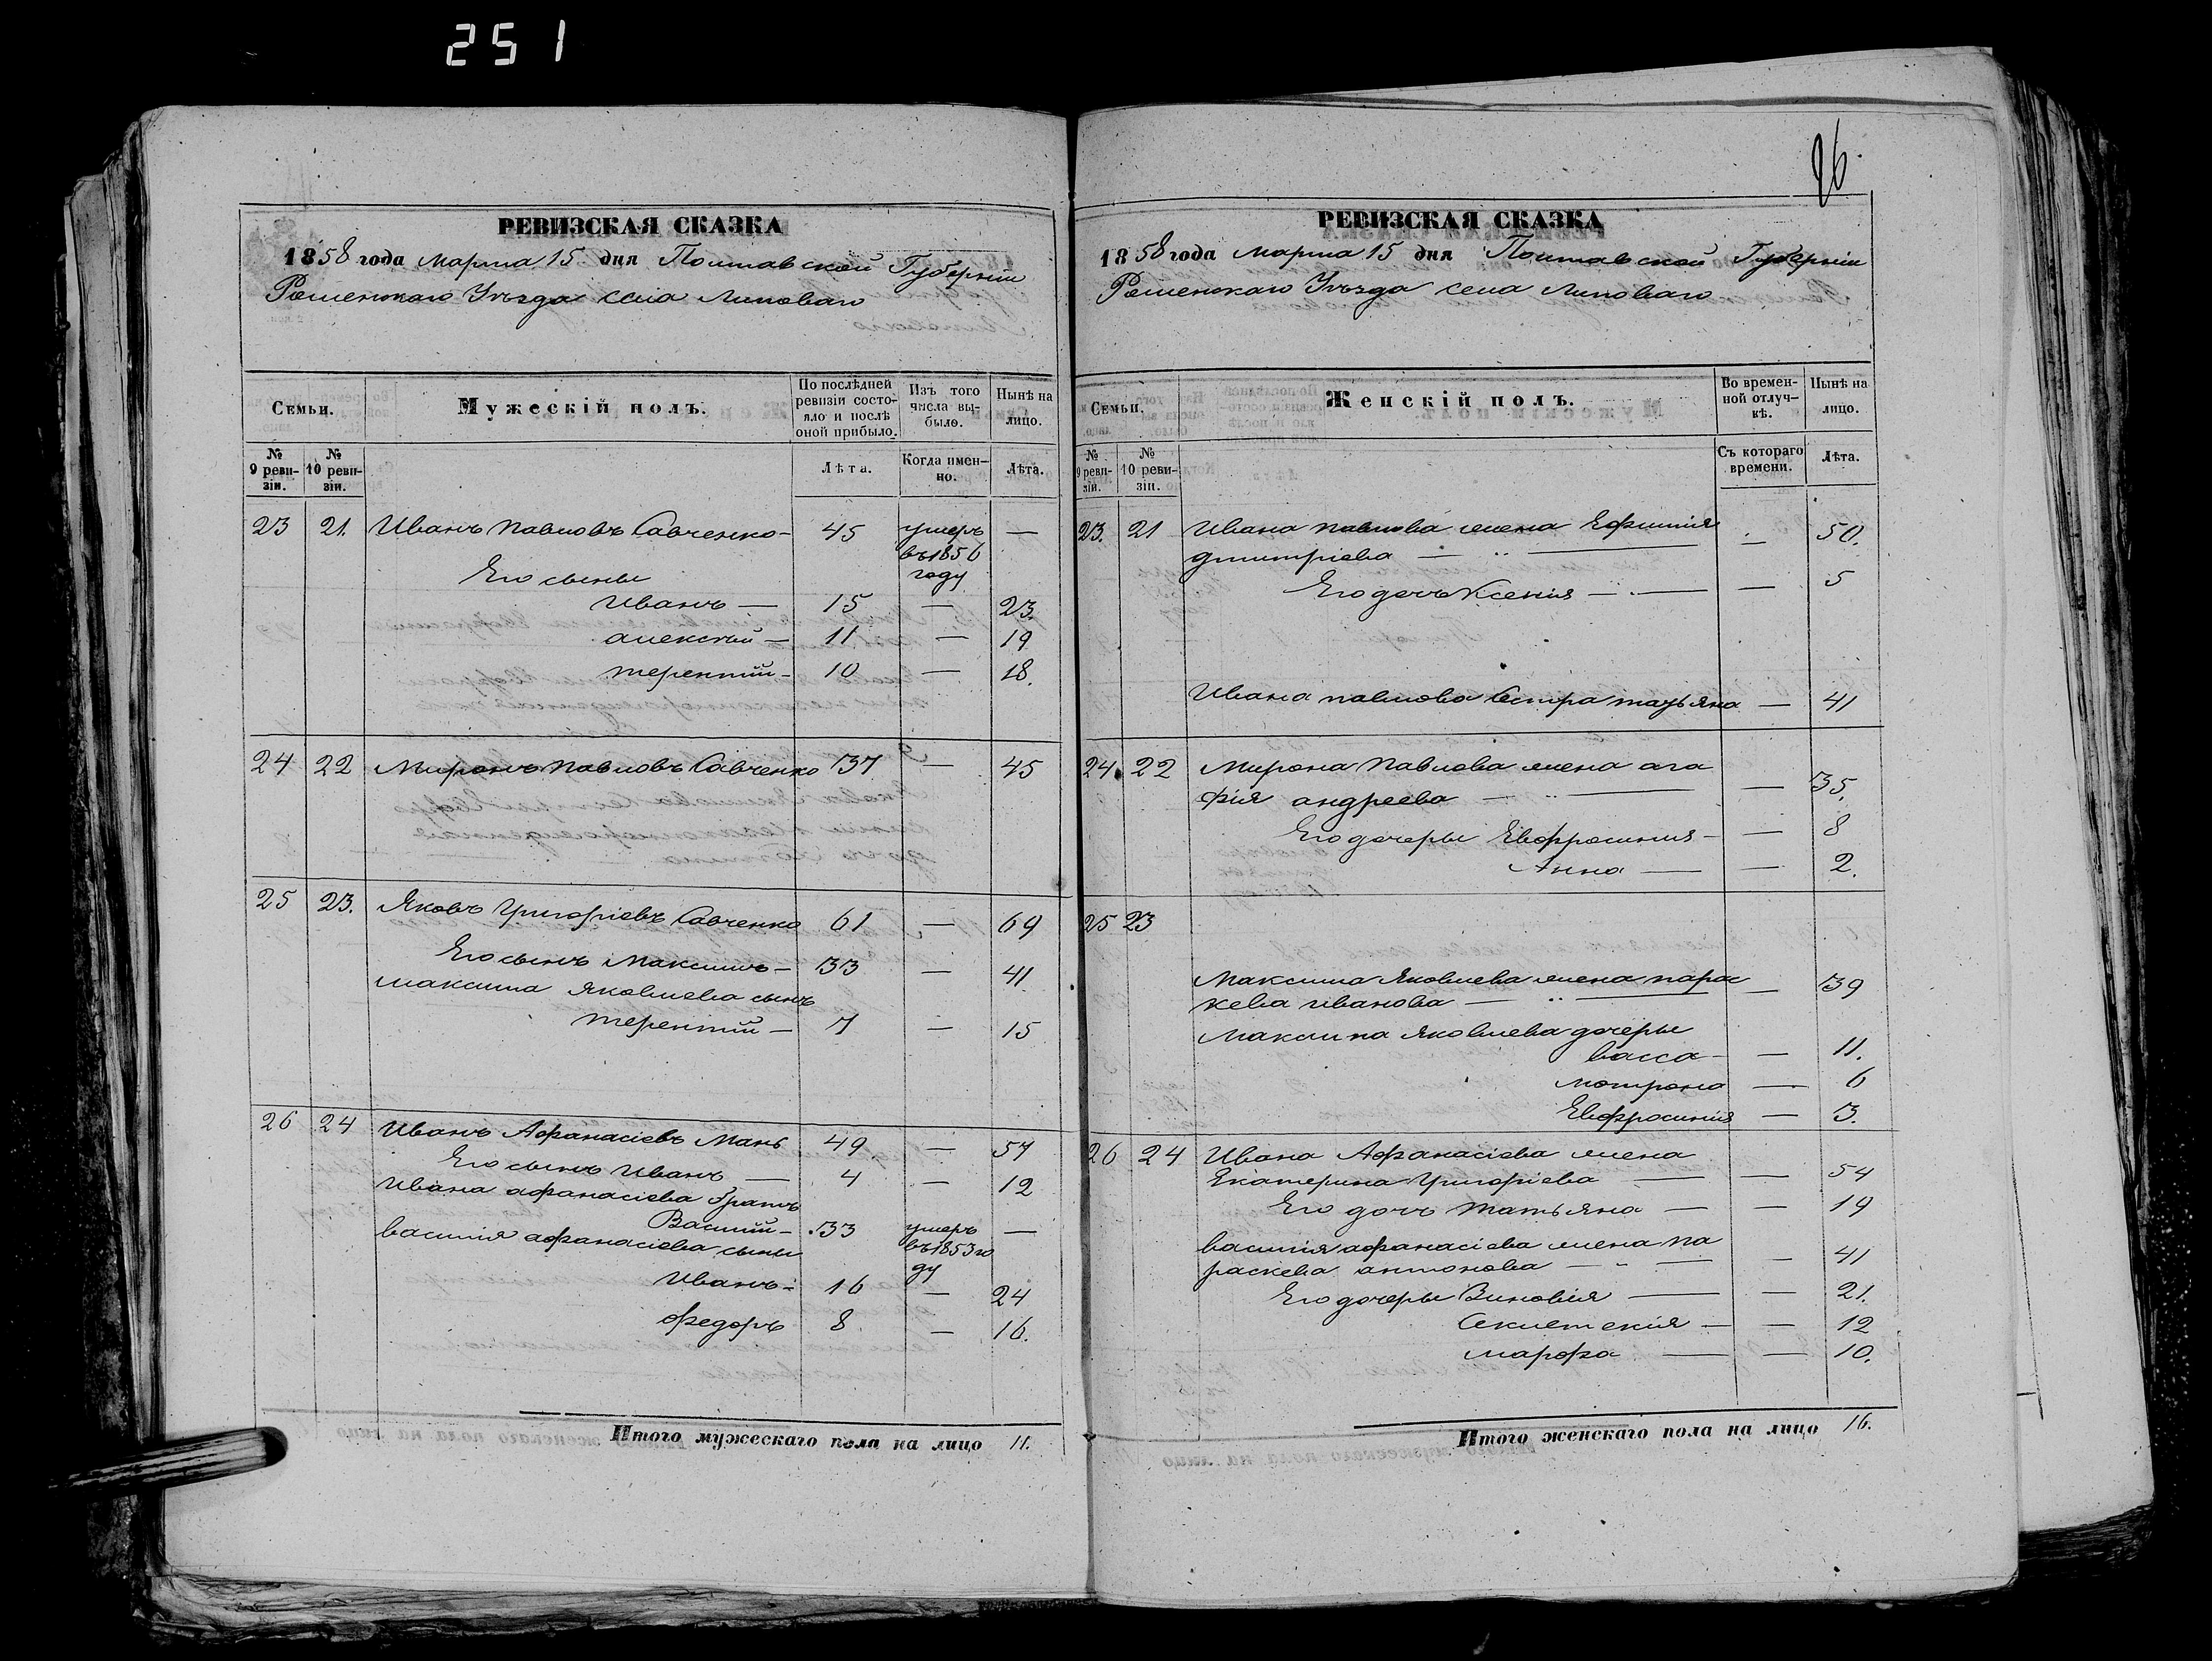 251
РЕВИЗСКАЯ СКАЗКА
1858 года марта 15 дня Полтавской Губерніи
Роменскаго Уѣзда села Липоваго
Семьи.
Мужескій полъ.
По послѣдней ревизіи состояло и послѣ оной прибыло.
Изъ того числа выбыло.
Нынѣ на лицо.
№ 9 ревизіи.
№ 10 ревизіи.
Лѣта.
Когда именно.
Лѣта.
23 21. Иванъ Павловъ Савченко - 45 умеръ —
въ 1856
Его сыны году
Иванъ — 15 — 23.
алексѣй — 11 — 19
терентій - 10 — 18.
24 22 Миронъ Павловъ Савченко 37 — 45
25 23. Яковъ Григоріевъ Савченко 61 — 69
Его сынъ Максимъ - 33 — 41
максима Яковлева сынъ
терентій — 7 — 15
26 24 Иванъ Афанасіевъ Мань 49 — 57
Его сынъ Иванъ — 4 — 12
Ивана афанасіева братъ
Василій - 33 умеръ —
василія афанасіева сыны въ 1853 го
ду
Иванъ - 16 — 24
федоръ 8 — 16.
Итого мужескаго пола на лицо 11.
26.
РЕВИЗСКАЯ СКАЗКА
1858 года марта 15 дня Полтавской Губерніи
Роменскаго Уѣзда села Липоваго
Семьи.
Женскій полъ.
Во временной отлучкѣ.
Нынѣ на лицо.
№ 9 ревизіи.
№ 10 ревизіи.
Съ котораго времени.
Лѣта.
23. 21 Ивана павлова жена Ефимія
дмитріева — — 50.
Его дочь Ксенія — — 5
Ивана павлова Сестра татьяна — 41
24. 22 Мирона Павлова жена ага
фія андреева — — 35.
Его дочеры Евфросинія - — 8
Анна — — 2.
25 23
Максима Яковлева жена парас
кева иванова — — 39
Максима Яковлева дочеры
васса - — 11.
мотрона — 6
Евфросинія — 3.
26 24 Ивана Афанасіева жена
Екатерина Григоріева — — 54
Его дочь татьяна — — 19
василія афанасіева жена па
раскева антонова — — 41
Его дочеры Зиновія — — 21.
Секлетекія — — 12
марфа — — 10.
Итого женскаго пола на лицо 16.